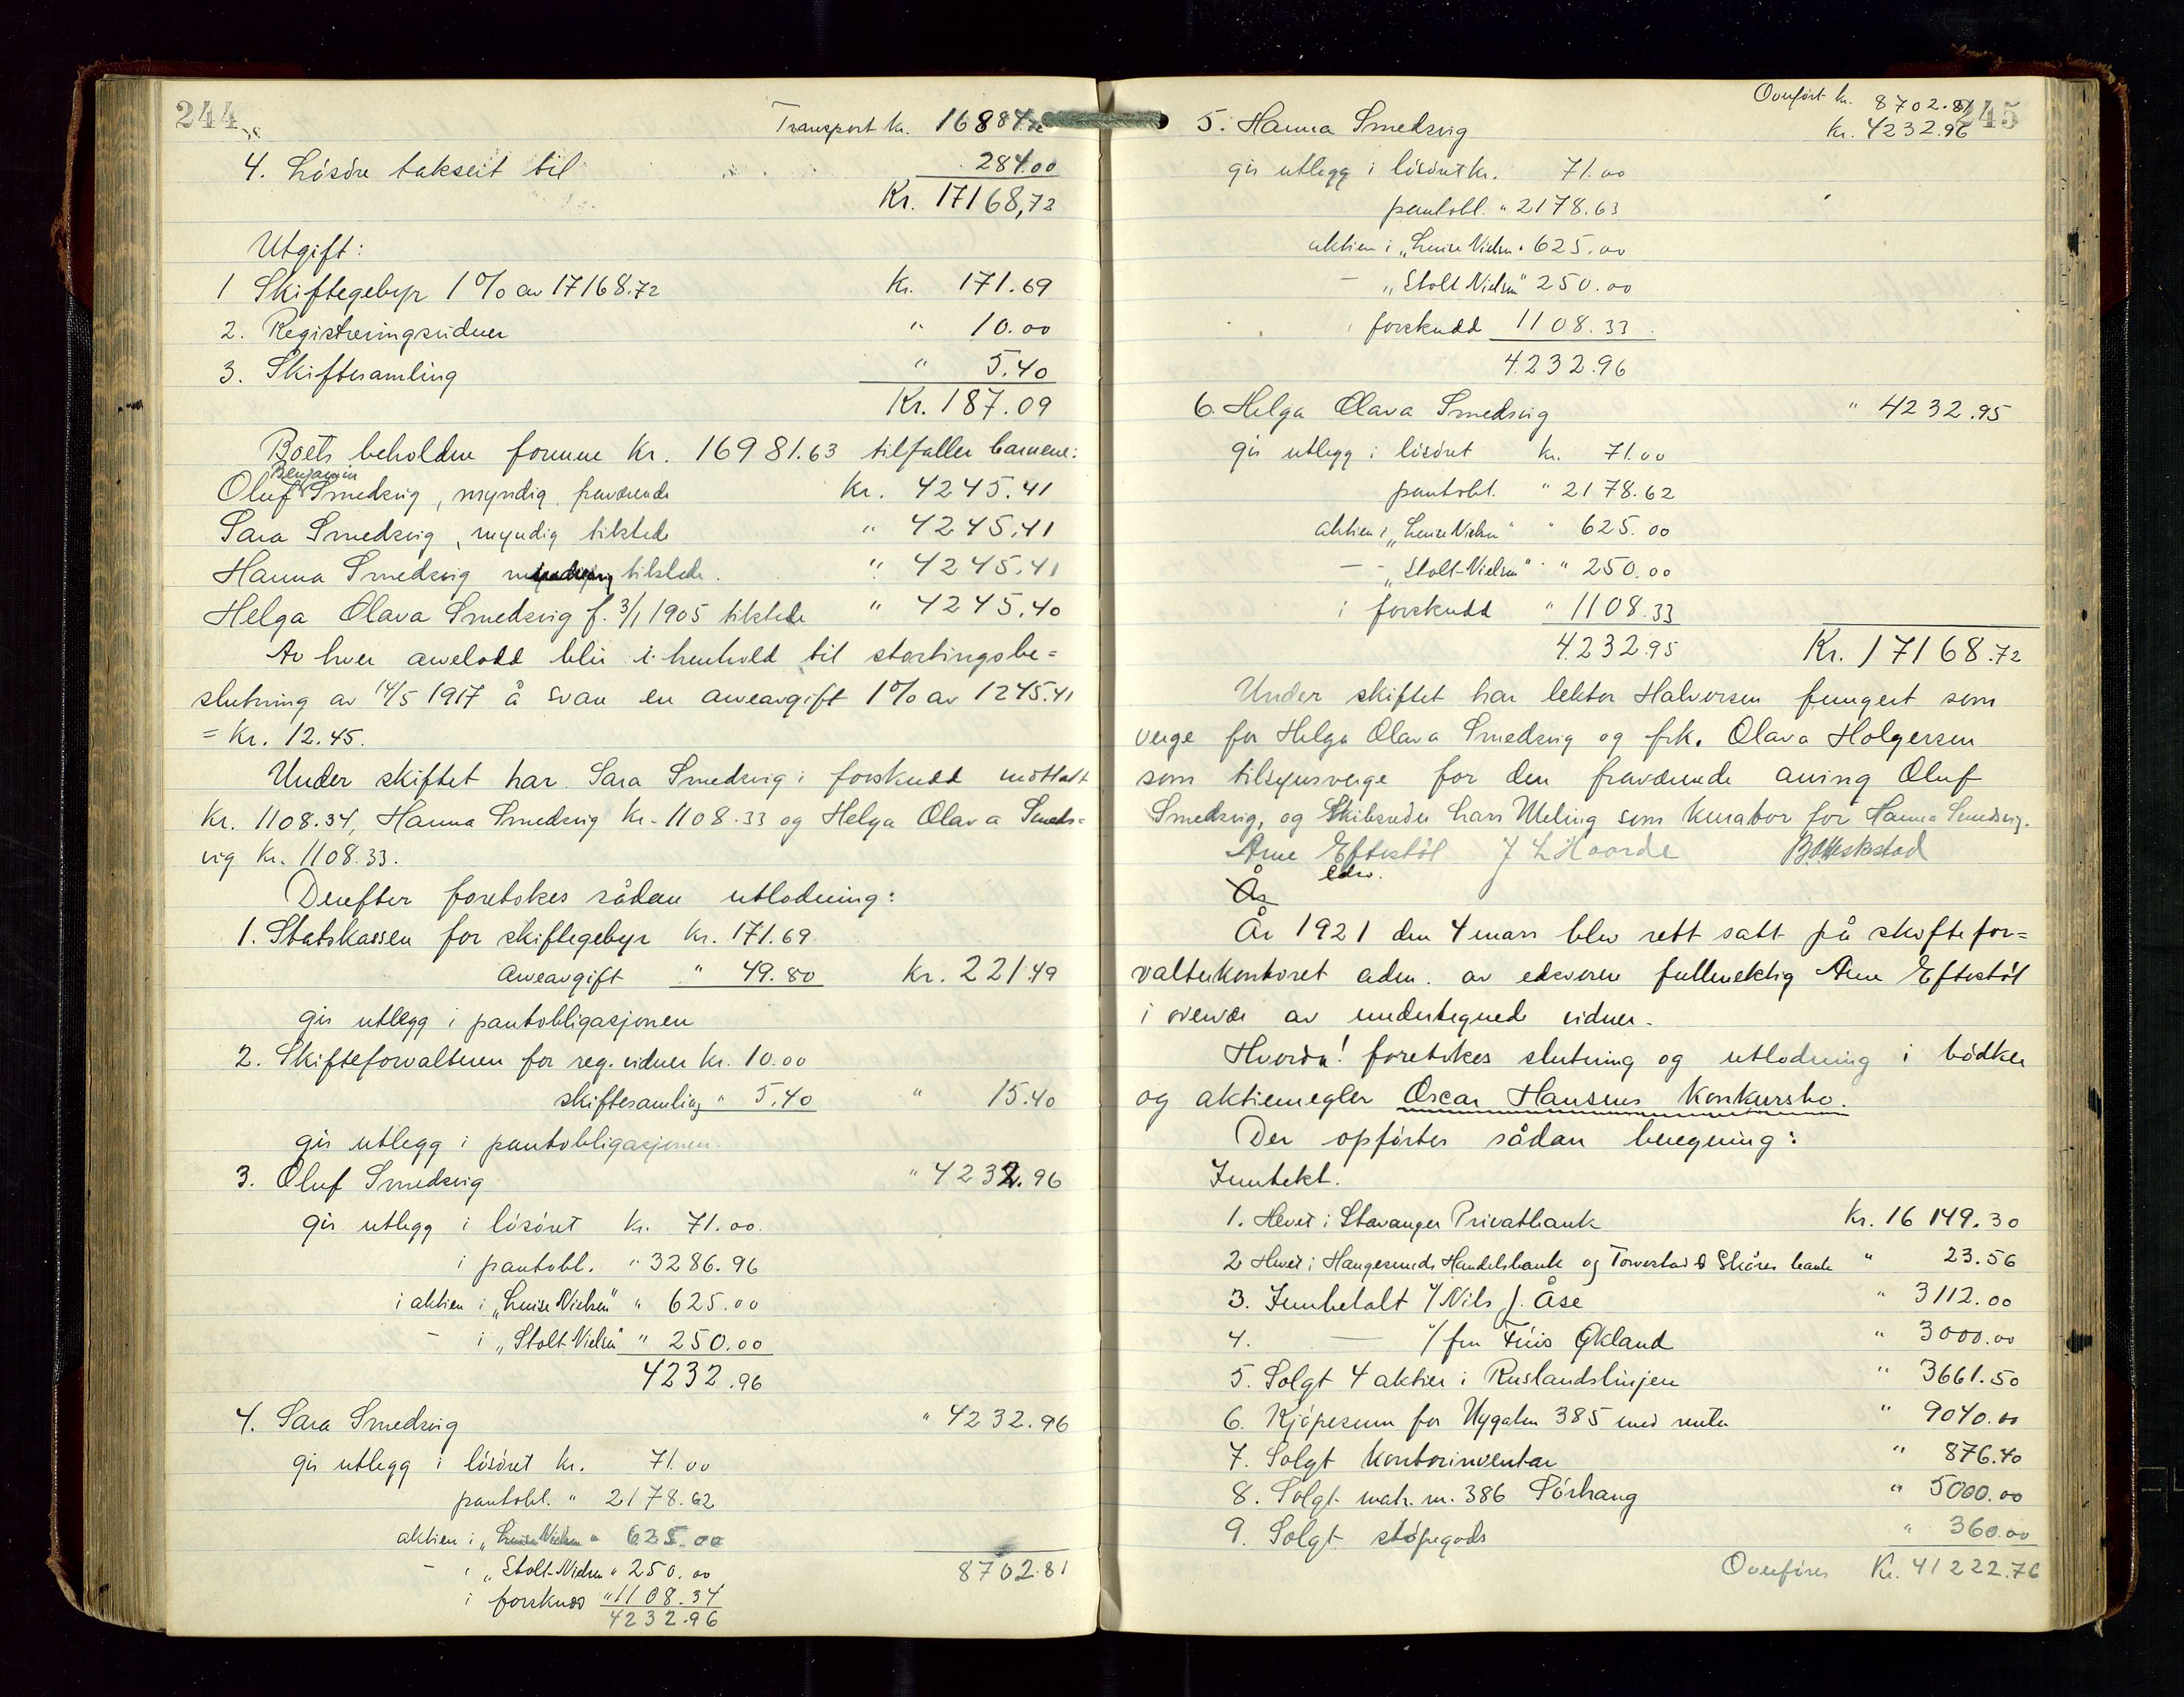 244
Transport kr. 16884.72
4. Lösöre taksert til 284.00
Kr. 17168,72
Utgift:
1 Skiftegebyr 1% av 17168.72 Kr. 171.69
2. Registreringsvidner " 10.00
3. Skiftesamling " 5.40
Kr. 187.09
Boets beholdne formue Kr. 16981.63 tilfaller barnene:
Benjamin
Oluf Smedsvig, myndig, fraværende Kr. 4245.41
Sara Smedsvig, myndig tilstede " 4245.41
Hanna Smedsvig tilstede. " 4245.41
Helga Olava Smedsvig f. 3/1 1905 tilstede " 4245.40
Av hver arvelodd blir i henhold til stortingsbe=
slutning av 14/5 1917 å svare en arveavgift 1% av 1245.41
= Kr. 12.45.
Under skiftet har Sara Smedsvig i forskudd mottatt
Kr. 1108.34, Hanna Smedsvig Kr. 1108.33 og Helga Olava Smeds=
vig Kr. 1108.33.
Derefter foretokes sådan utlodning:
1. Statskassen for skiftegebyr Kr. 171.69
arveavgift " 49.80 Kr. 221.49
gis utlegg i pantobligasjonen
2. Skifteforvalteren for reg. vidner Kr. 10.00
skiftesamling " 5.40 " 15.40
gis utlegg i pantobligasjonen.
3. Oluf Smedsvig " 4232.96
gis utlegg i lösöret Kr. 71.00.
i pantobl. " 3286.96
i aktien i „Luise Nielsen" " 625.00
- i „Stolt Nielsen" " 250.00
4232.96
4. Sara Smedsvig " 4232.96
gis utlegg i lösöret Kr. 71.00
pantobl. " 2178.62
aktien i „Luise Nielsen " 625.00
- i „Stolt-Nielsen " 250.00 8702.81
i forskudd " 1108.34
4232.96
245
Overfört kr. 8702.81
5. Hanna Smedsvig Kr. 4232.96
gis utlegg i lösöret kr. 71.00
pantobl. " 2178.63
aktien i „Luise Nielsen " 625.00
- „Stolt Nielsen" 250.00
i forskudd 1108.33
4232.96
6. Helga Olava Smedsvig " 4232.95
gis utlegg i lösöret kr. 71.00
pantobl. " 2178.62
aktien i „Luise Nielsen" " 625.00
- - „Stolt-Nielsen" " 250.00
i forskudd " 1108.33
4232.95 Kr. 17168.72
Under skiftet har lektor Halvorsen fungert som
verge for Helga Olava Smedsvig og frk. Olava Holgersen
som tilsynsverge for den fraværende arving Oluf
Smedsvig, og Skibsreder Hans Meling som Kurator for Hanna Smedsvig.
Arne Eftestöl J L Haarde B. Meskestad
edsv.
År
År 1921 den 4 mars blev rett satt på skiftefor=
valterkontoret adm. av edsvoren fullmektig Arne Eftestöl
i overvær av undertegnede vidner.
Hvorda! foretokes slutning og utlodning i bödker
og aktiemegler Oscar Hansens Konkursbo.
Der opförtes sådan beregning:
Inntekt.
1. Hevet i Stavanger Privatbank Kr. 16149.30
2. Hevet i Haugesunds Handelsbank og Torvestad & Skåres bank " 23.56
3. Innbetalt v/ Nils J. Åse " 3112.00
4. — v/ fru Fiuis Ökland " 3000.00
5. Solgt 4 aktier i Ruslandslinjen " 3661.50
6. Kjöpesum for Nygaten 385 med renter " 9040.00
7. Solgt Kontorinventar " 876.40
8. Solgt matr. nr. 386 Sörhaug " 5000.00
9. Solgt stöpegods " 360.00
Overföres Kr. 41222.76